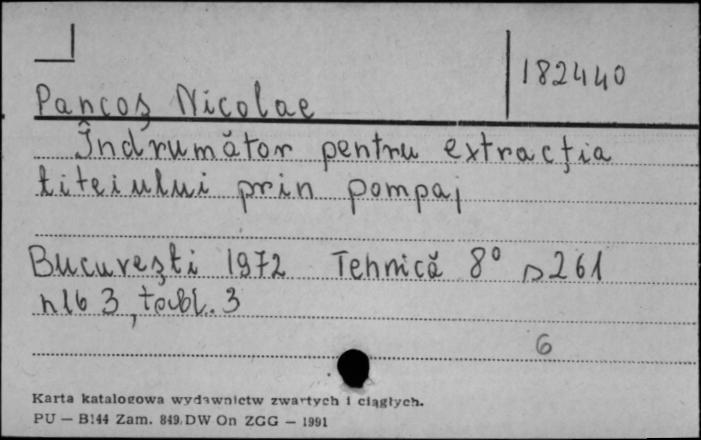 182440
Pancoş Nicolae
Îndrumător pentru extracţia
ţiţeiului prin pompaj
Bucureşti 1972 Tehnică 8° s 261
nlb 3, tabl. 3
6
Karta katalogowa wydawnictw zwartych i ciągłych.
PU — B144 Zam. 849. DW On ZGG — 1991